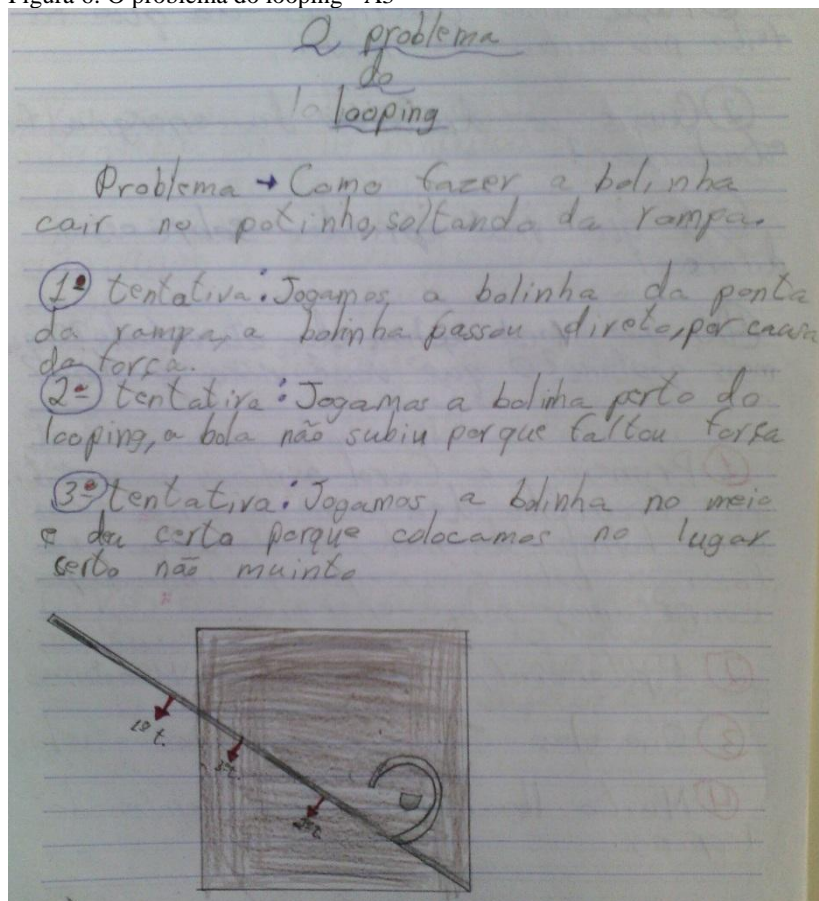 Figura 6: O problema do looping - A3
O problema
do
looping
Problema → Como fazer a bolinha
cair no potinho, soltando da rampa.
1ª tentativa: Jogamos a bolinha da ponta
da rampa, a bolinha passou direto, por causa
da força.
2ª tentativa: Jogamos a bolinha perto do
looping, a bola não subiu porque faltou força
3ª tentativa: Jogamos a bolinha no meio
e deu certo porque colocamos no lugar
certo não muinto
1ª t.
3ª t.
2ª t.